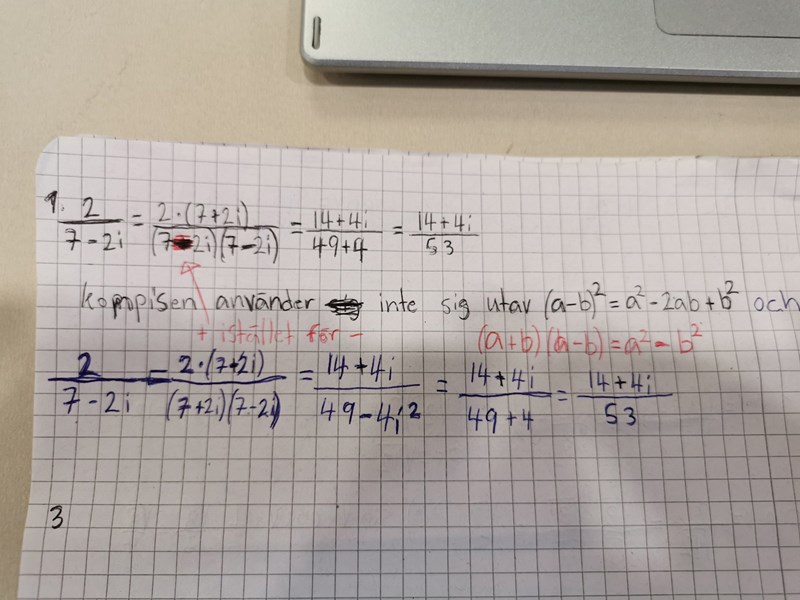 1. 2/(7-2i) = 2·(7+2i)/((7-2i)(7-2i)) = (14+4i)/(49+4) = (14+4i)/53
kompisen använder inte sig utav (a-b)² = a²-2ab+b² och
+ istället för - (a+b)(a-b)=a²-b²
2/(7-2i) = 2·(7+2i)/((7+2i)(7-2i)) = (14+4i)/(49-4i²) = (14+4i)/(49+4) = (14+4i)/53
3